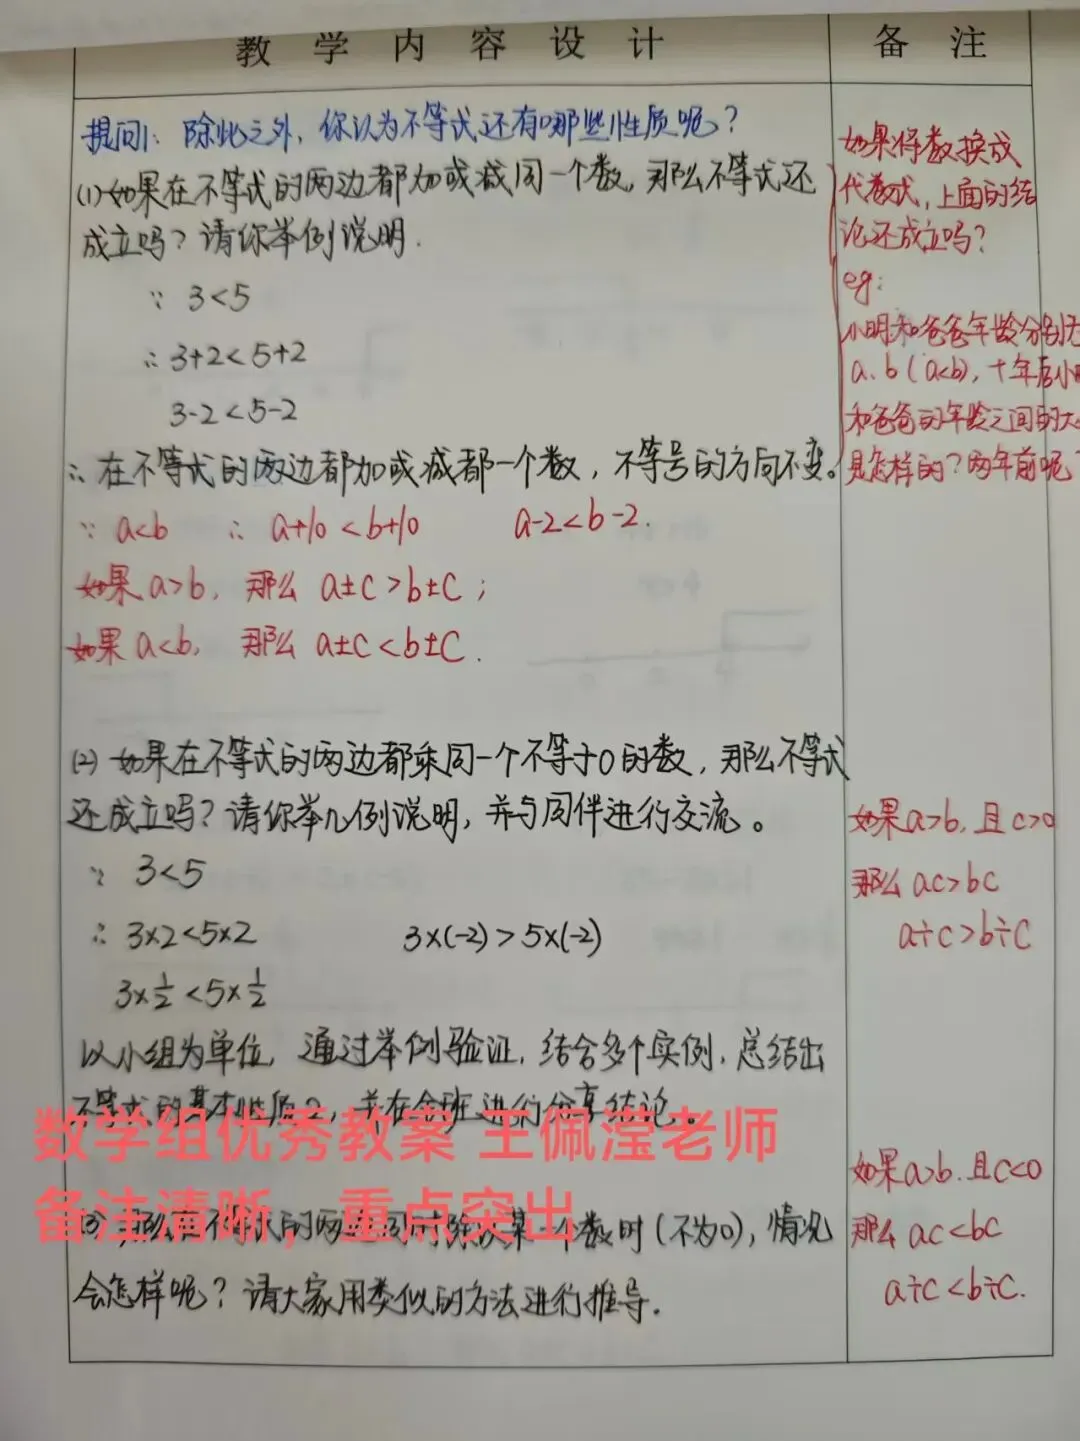 教学内容设计
备注
提问1: 除此之外, 你认为不等式还有哪些性质呢?
(1) 如果在不等式的两边都加或减同一个数, 那么不等式还
成立吗? 请你举例说明.
∵ 3<5
∴ 3+2<5+2
3-2<5-2
∴ 在不等式的两边都加或减都一个数, 不等号的方向不变。
∵ a<b ∴ a+10<b+10 a-2<b-2.
如果 a>b, 那么 a±c>b±c;
如果 a<b, 那么 a±c<b±c.
(2) 如果在不等式的两边都乘同一个不等于0的数, 那么不等式
还成立吗? 请你举几例说明, 并与同伴进行交流。
∵ 3<5
∴ 3×2<5×2 3×(-2)>5×(-2)
3×1/2<5×1/2
以小组为单位, 通过举例验证, 结合多个实例, 总结出
不等式的基本性质2, 并在全班进行分享结论。
(3) 那么在不等式的两边同时除以某一个数时(不为0), 情况
会怎样呢? 请大家用类似的方法进行推导.
如果将数换成
代数式, 上面的结
论还成立吗?
eg:
小明和爸爸年龄分别
a、b (a<b), 十年后小
和爸爸的年龄之间的大
是怎样的? 两年前呢
如果a>b, 且c>0
那么 ac>bc
a÷c>b÷c
如果a>b. 且c<0
那么 ac<bc
a÷c<b÷c.
数学组优秀教案 王佩滢老师
备注清晰，重点突出